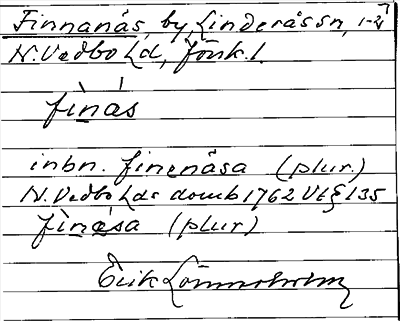 Finnanäs, by, Linderås sn, 1-4
N. Vedbo hd, Jönk. l.
fìnás
inbn. finenåsa (plur.)
N. Vedbo hds domb 1762 Vt § 135
fìnása (plur)
Erik Lönnerholm